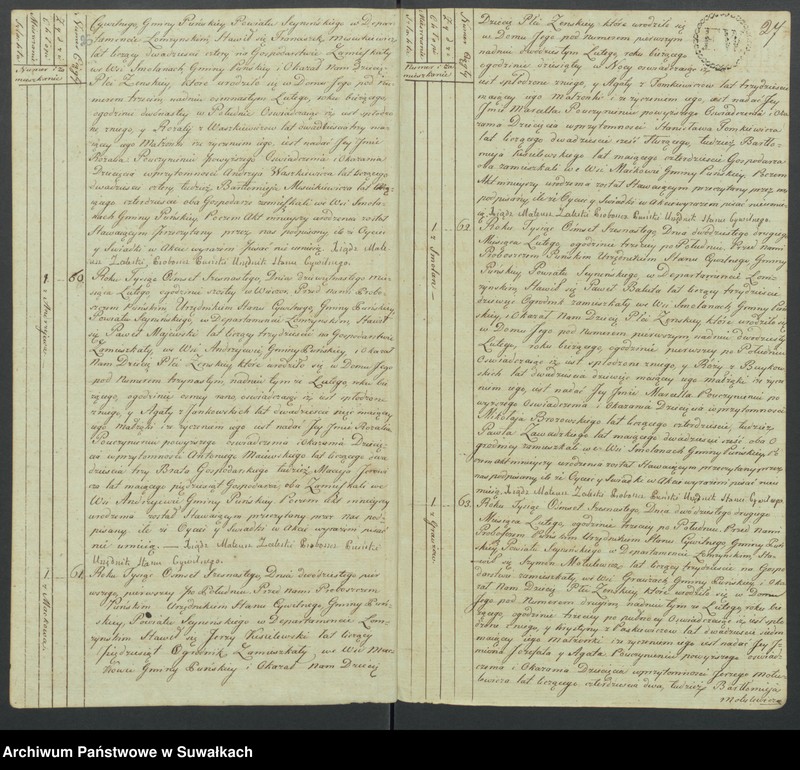 Cywilnego, Gminy Puńskiey Powiatu Seynińskiego w Depar-
tamencie Łomżyńskim, Stawił się Franciszek
lat liczący dwadzieścia cztery na Gospodarstwie Zamieszkały
we Wsi Smolanach Gminy Puńskiey i Okazał nam Dziecię
Płci Żenskiey, które urodziło się w Domu Jego pod nu-
merem trzecim nadniu osmnastym Lutego, roku bieżącego,
ogodzinie dwónastey w Południe Oswiadczaiąc iż iest spłodzo-
ne zniego, y Rozalij z Waszkiewiczow lat dwadzieścia
iącey iego Małzonki i że życzeniem iego, iest nadać Jey Jmie
Rozalia Powczynieniu powyższego Oswiadczenia i Okazania
Dziecięcia wprzytomności Andrzeia Waszkiewicza lat liczącego
dwadzieścia cztery tudzież Bartłomieja lat
iącego czterdziescia oba Gospodarze zamieszkali we Wsi Smola-
nach Gminy Puńskiey Poczem Akt ninieyszy urodzenia został
Stawaiącym przeczytany przez nas podpisany ile że Oyciec
y Swiadki w Akcie wyrażeni pisać nie umieią. Xiądz Mate-
usz Zaleski Proboszcz Puński Urzędnik Stanu Cywilnego.
1 60. Roku Tysiąc Osmset Szesnastego, Dnia dwudziestego Mie-
siąca Lutego, ogodzinie szostey wWieczor. Przed nami Probo-
szczem Puńskim Urzędnikiem Stanu Cywilnego, Gminy Puńskiey,
Powiatu Seynińskiego, w Departamencie Łomżyńskim, Stawił
się Paweł Majewski lat liczący trzydzieści na Gospodarstwie
Zamieszkały, we Wsi Andrzejewie Gminy Puńskiey i Okazał
nam Dziecię Płci Żenskiey które urodziło się w Domu Jego
pod Numerem trzynastym, nadniu tym że Lutego, roku bie-
żącego, ogodzinie osmey rano, oswiadczaiąc iż iest spłodzo-
ne zniego, y Agaty z Jankowskich lat dwadzieścia pięć maiącey,
iego Małzonki i że życzeniem iego iest nadać Jey Jmie Rozalia.
Powczynieniu powyższego oswiadczenia i Okazania Dziecię-
cia wprzytomności Antoniego Maiewskiego lat liczącego dwa-
dzieścia trzy Brata Gospodarskiego tudzież Macieja
lat maiącego pięćdziesiąt Gospodarza, oba Zamieszkali we
Wsi Andrzejewie Gminy Puńskiey Poczem Akt ninieyszy
urodzenia został Stawaiącym przeczytany przez nas pod-
pisany ile że Oyciec y Swiadki w Akcie wyrażeni pisać
nie umieią. — Xiądz Mateusz Zaleski Proboszcz Puński
Urzędnik Stanu Cywilnego.
1 61. Roku Tysiąc Osmset Szesnastego, Dnia dwudziestego pier-
wszego, pierwszey Po Południu. Przed nami Proboszczem
Puńskim Urzędnikiem Stanu Cywilnego Gminy Puń-
skiey, Powiatu Seynińskiego w Departamencie Łom-
żyńskim Stawił się Jerzy Kisielewski lat liczący
Zamieszkały, we Wsi
Gminy Puńskiey i Okazał nam Dziecię
27
Dziecię Płci Żenskiey które urodziło się
w Domu Jego pod numerem pierwszym
nadniu dwudziestym Lutego, roku bieżącego,
ogodzinie dziesiątey w Nocy oswiadczaiąc iż
iest spłodzone zniego, y Agaty z Tomkiewiczow lat trzydzieści
maiącey iego Małzonki i że życzeniem iego, iest nadać Jey
Jmie Marcella. Powczynieniu powyższego Oswiadczenia i Oka-
zania Dziecięcia wprzytomności Stanisława Tomkiewicza
lat liczącego dwadzieścia sześć Służącego, tudzież Bartło-
mieja Kisielewskiego lat maiącego czterdzieści Gospodarza
oba zamieszkali we Wsi Gminy Puńskiey. Poczem
Akt ninieyszy urodzenia został Stawaiącym przeczytany przez nas
podpisany, ile że Oyciec y Swiadki w Akcie wyrażeni pisać nieumie-
ią. Xiądz Mateusz Zaleski Proboszcz Puński Urzędnik Stanu Cywilnego.
1 62. Roku Tysiąc Osmset Szesnastego, Dnia dwudziestego drugiego
Miesiąca Lutego, ogodzinie trzeciey po Południu. Przed nami
Proboszczem Puńskim Urzędnikiem Stanu Cywilnego, Gminy
Puńskiey, Powiatu Seynińskiego, w Departamencie Łom-
żyńskim Stawił się Paweł Bakuła lat liczący trzydzieści
dziewięć Ogrodnik zamieszkały we Wsi Smolanach Gminy Puń-
skiey, i Okazał nam Dziecię Płci Żenskiey, które urodziło się
w Domu Jego pod Numerem pierwszym nadniu dwudziestym
Lutego, roku bieżącego, ogodzinie pierwszey po Południu
Oswiadczaiąc iż iest spłodzone zniego, y Rozy z
skich lat dwadzieścia dziewięć maiącey iego małzonki i że życze-
niem iego, iest nadać Jey Jmie Marcella Powczynieniu po-
wyższego Oswiadczenia i Okazania Dziecięcia wprzytomności
Mikołaja Brozowskiego lat liczącego czterdzieści, tudzież
Pawła Zawadzkiego lat maiącego dwadzieścia sześć oba O-
grodnicy zamieszkali we Wsi Smolanach Gminy Puńskiey. Po-
czem akt ninieyszy urodzenia został Stawaiącym przeczytany przez
nas podpisany ile że Oyciec y Swiadki w Akcie wyrażeni pisać nie-
umieią. Xiądz Mateusz Zaleski Proboszcz Puński Urzędnik Stanu Cywilnego.
1 63. Roku Tysiąc Osmset Szesnastego, Dnia dwudziestego drugiego
Miesiąca Lutego, ogodzinie trzeciey po Południu. Przed nami
Proboszczem Puńskim Urzędnikiem Stanu Cywilnego, Gminy Puń-
skiey Powiatu Seynińskiego w Departamencie Łomżyńskim, Sta-
wił się Szymon Matulewicz lat liczący trzydzieści na Gospo-
darstwie zamieszkały we Wsi Grauzach Gminy Puńskiey i Oka-
zał Nam Dziecię Płci Żenskiey, które urodziło się w Domu
Jego pod Numerem drugim, nadniu tym że Lutego, roku bie-
żącego, ogodzinie trzeciey po północy Oswiadczaiąc iż iest spło-
dzone zniego, y Krystyny z Paszkiewiczow lat dwadzieścia siedm
maiącey iego Małzonki i że życzeniem iego iest nadać Jey J-
miona Jozefata y Agata Powczynieniu powyższego oswiad-
czenia i Okazania Dziecięcia wprzytomności Jerzego Matu-
lewicza lat liczącego czterdzieści dwa, tudzież Bartłomieja
Matulewicza
Archiwum Państwowe w Suwałkach